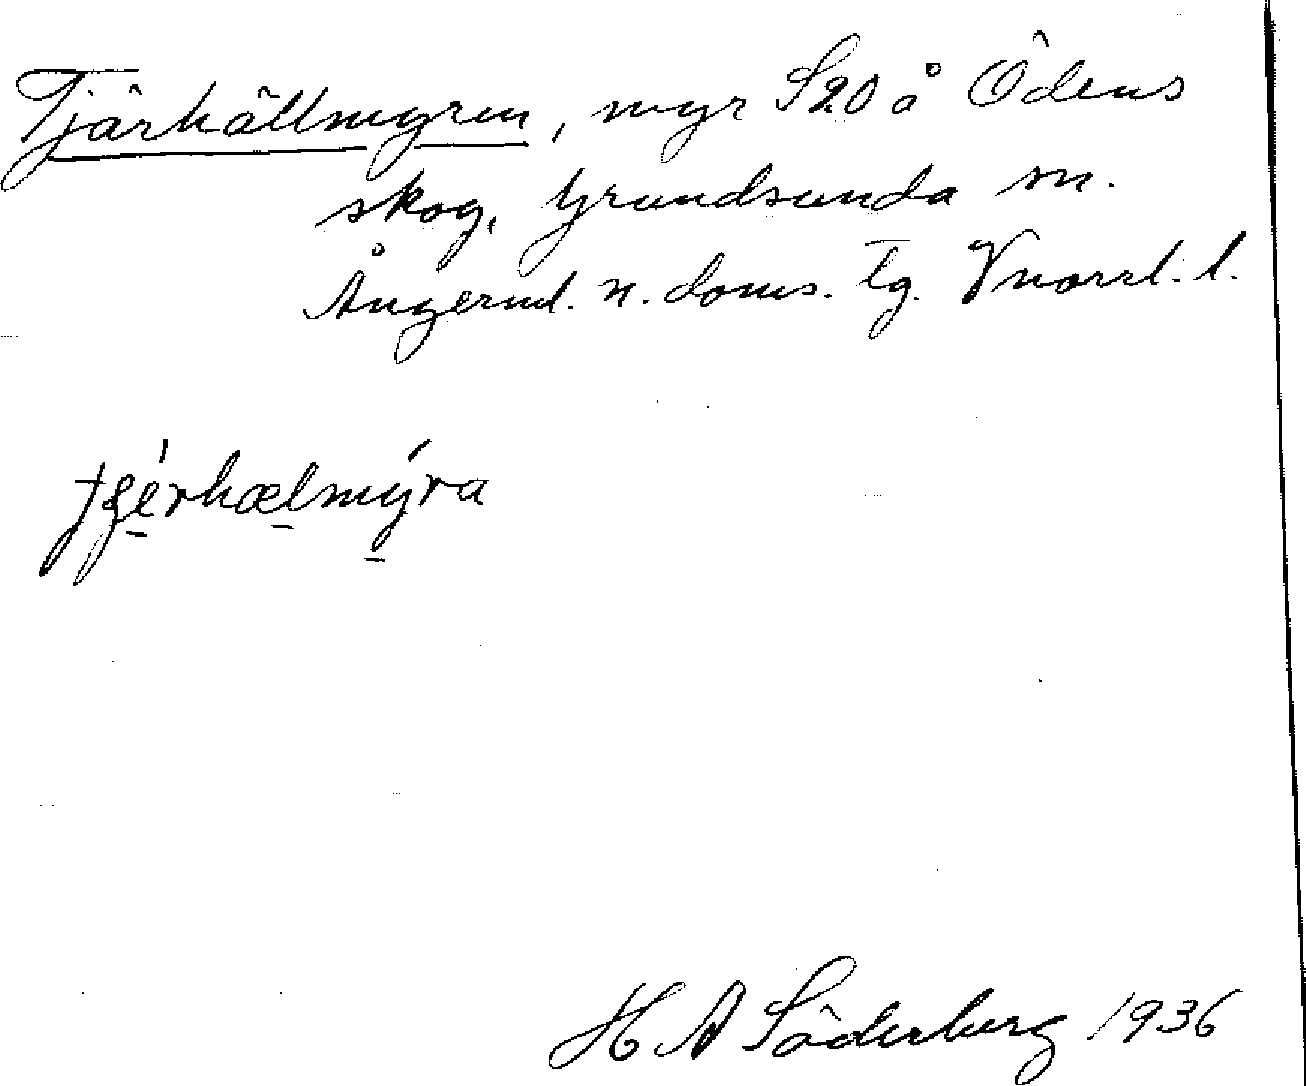 Tjärhällmyren, myr S20 å Ödens
skog, Grundsunda sn.
Ångerml. n. doms. tg. Vnorrl. l.
H A Söderberg 1936